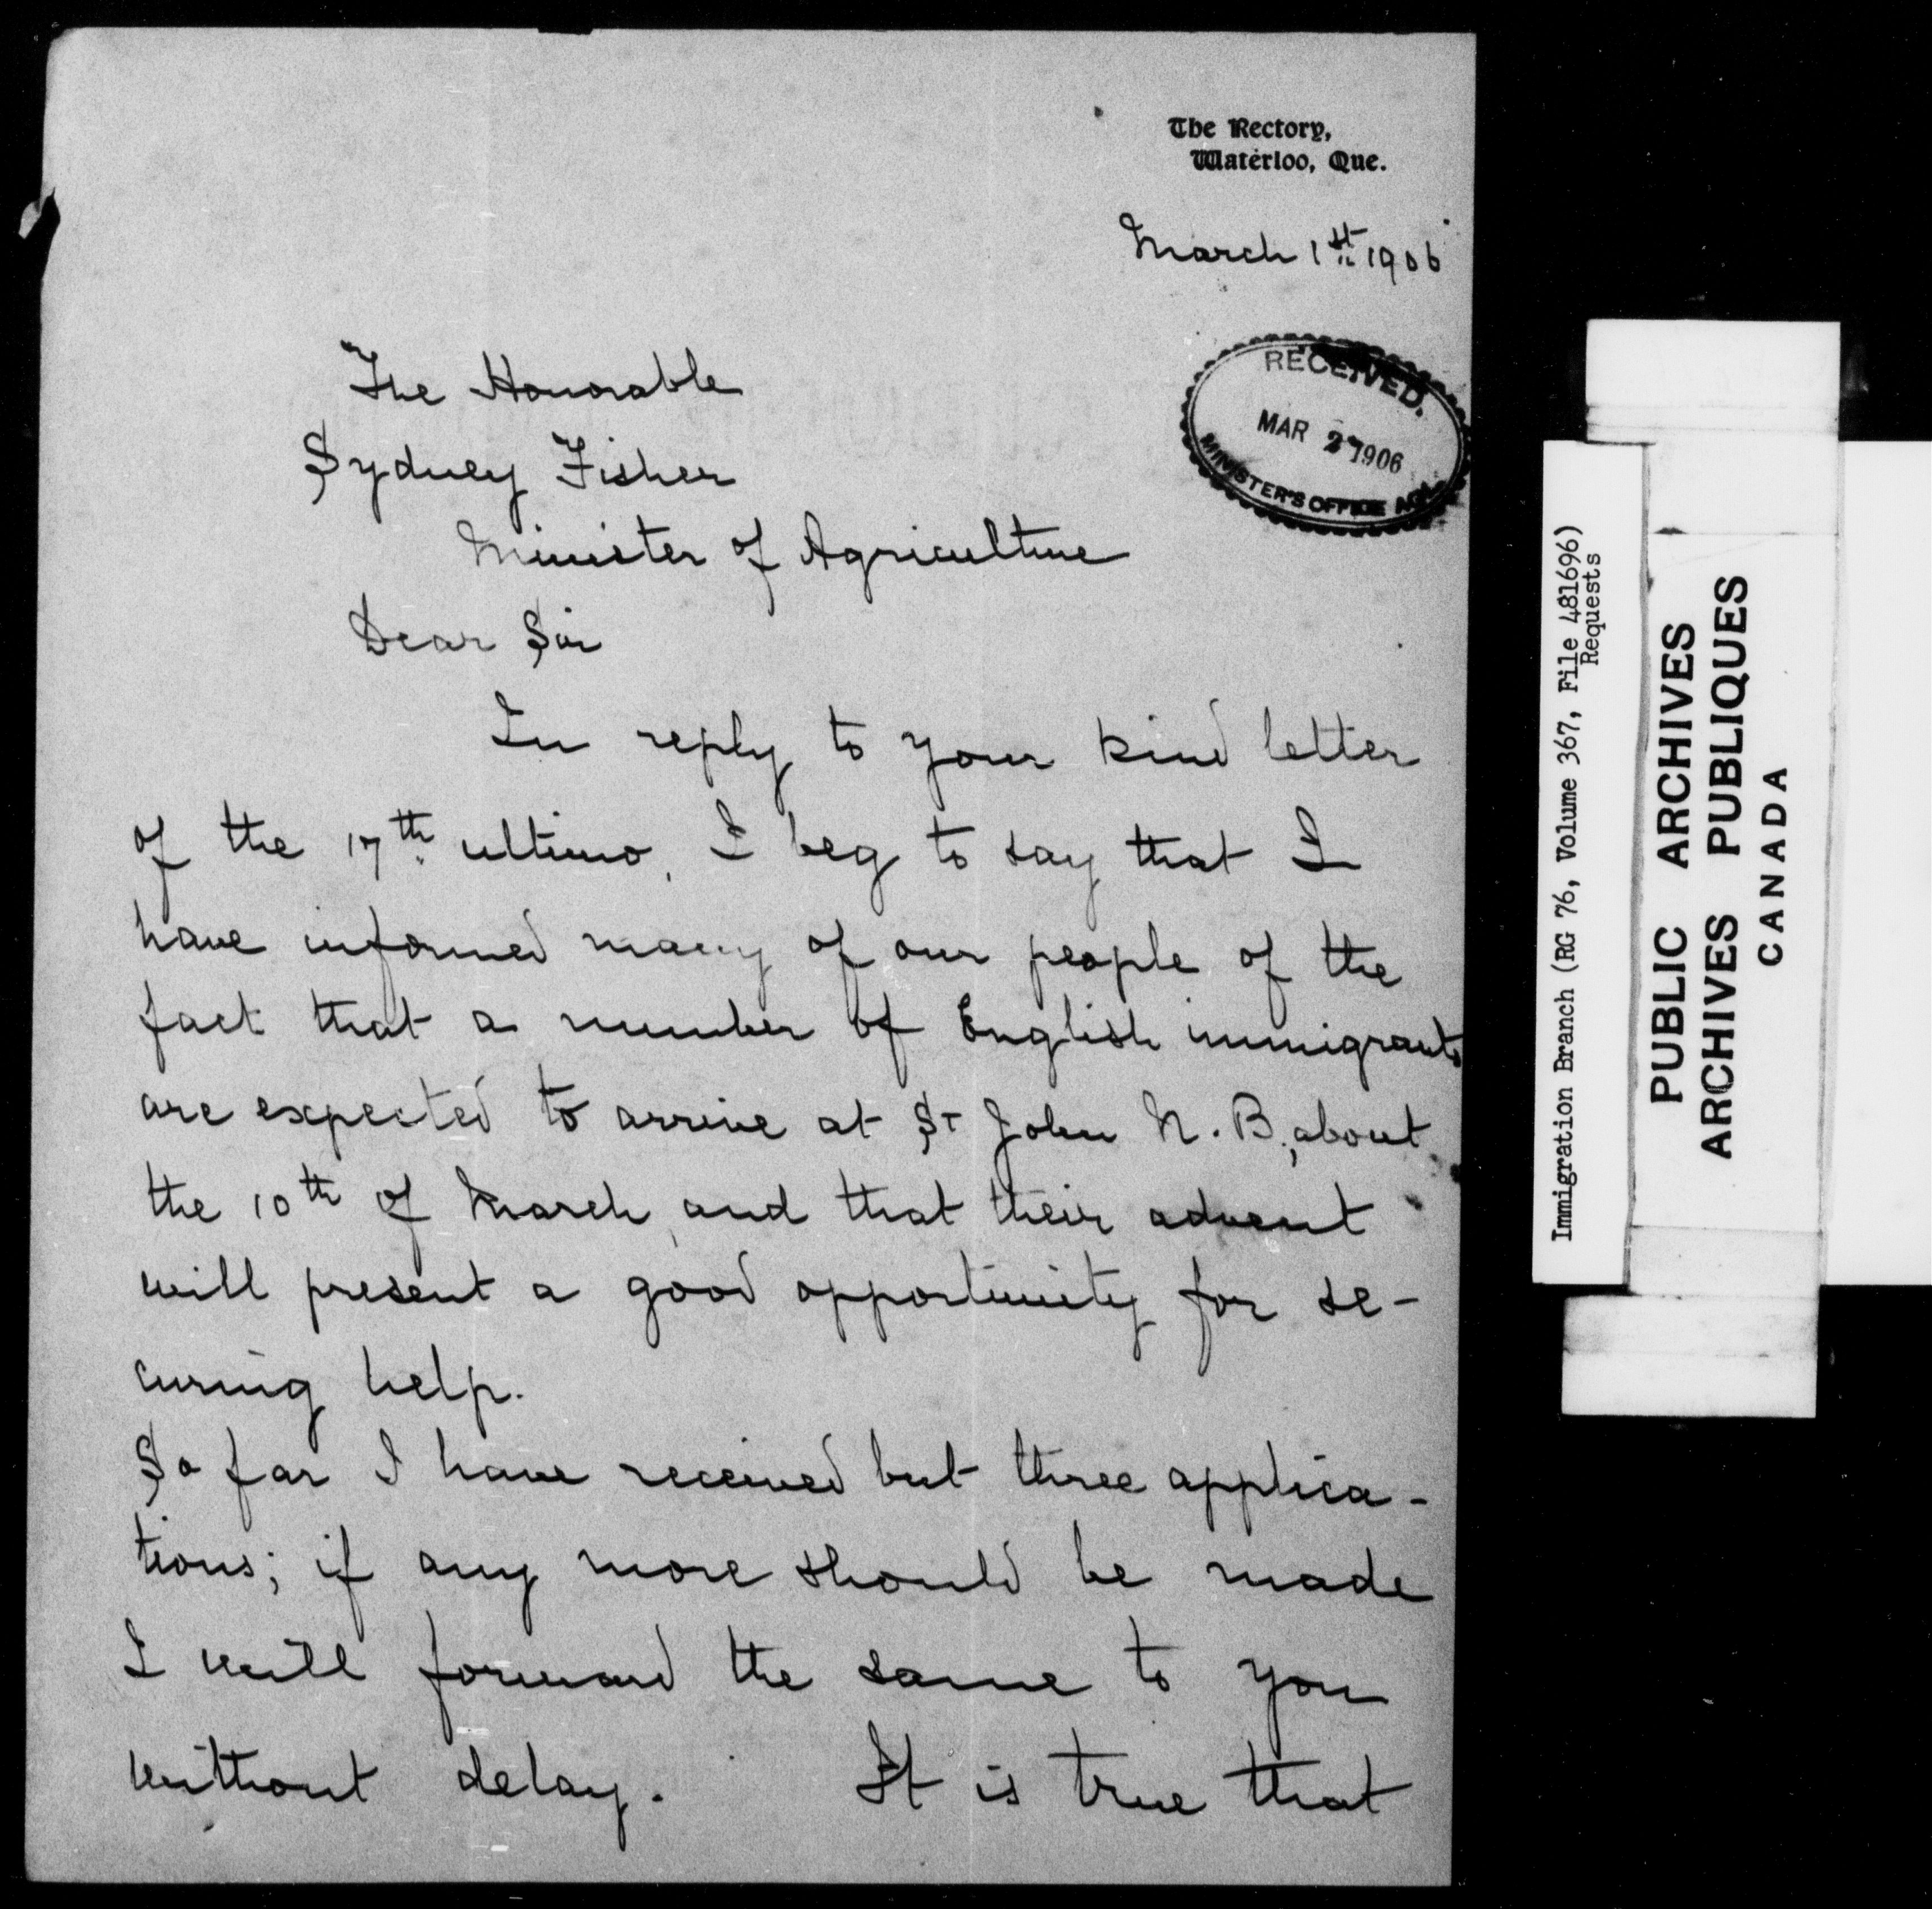 The Rectory,
Waterloo, Que.
March 1st 1906
RECEIVED.
MAR 2 1906
MINISTER'S OFFICE AGR.
The Honorable
Sydney Fisher
Minister of Agriculture
Dear Sir
In reply to your kind letter
of the 17th ultimo, I beg to say that I
have informed many of our people of the
fact that a number of English immigrants
are expected to arrive at St John N.B., about
the 10th of March, and that their advent
will present a good opportunity for se-
curing help.
So far I have received but three applica-
tions; if any more should be made
I will forward the same to you
without delay. It is true that
Immigration Branch (RG 76, Volume 367, File 481696)
Requests
PUBLIC ARCHIVES
ARCHIVES PUBLIQUES
CANADA